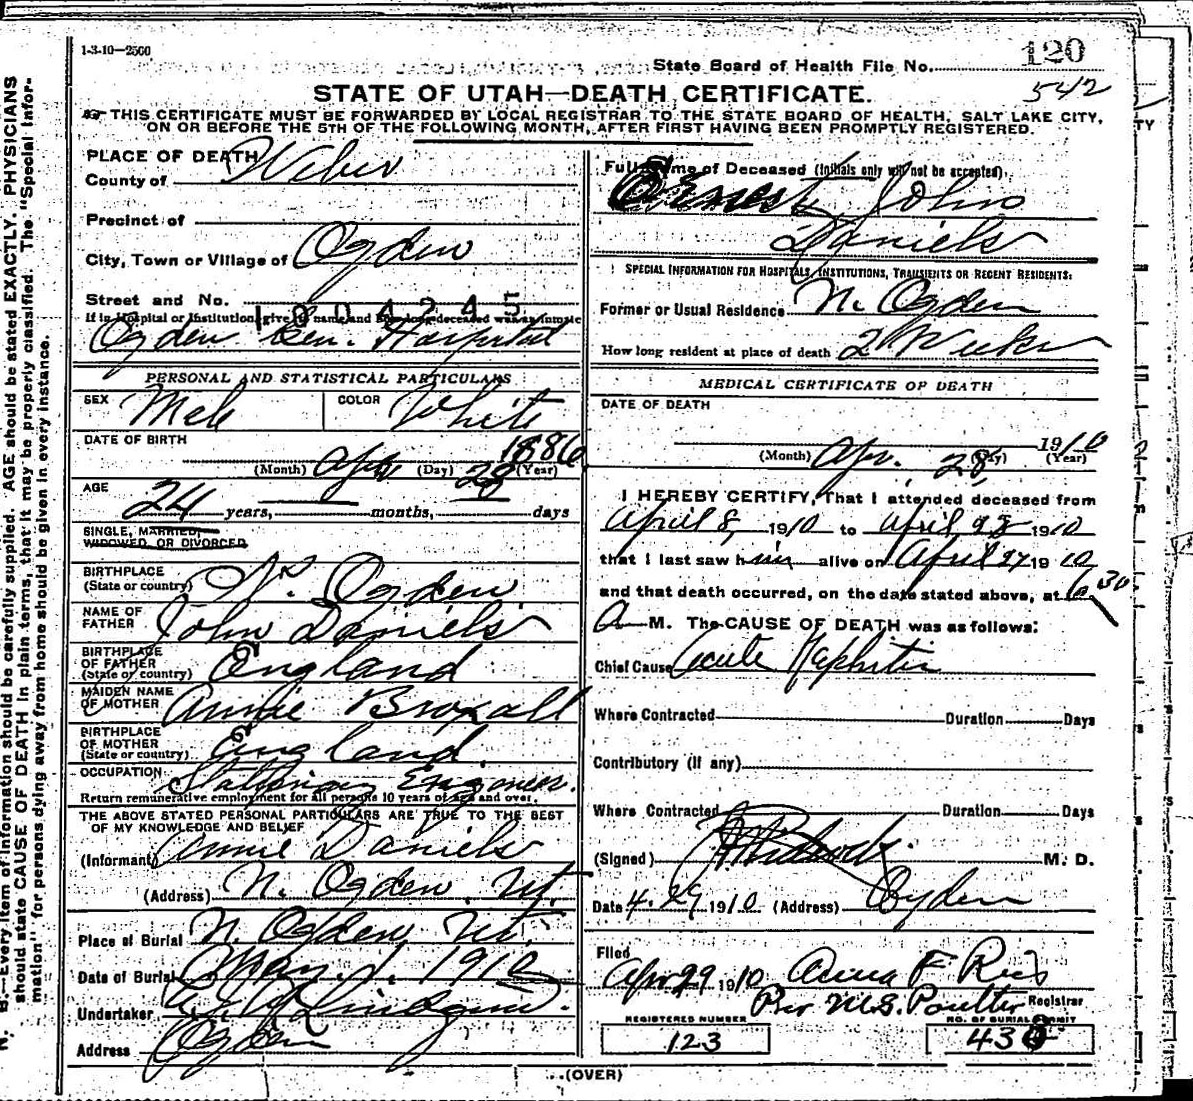 1-3-10—2500
State Board of Health File No. 120
542
STATE OF UTAH—DEATH CERTIFICATE.
THIS CERTIFICATE MUST BE FORWARDED BY LOCAL REGISTRAR TO THE STATE BOARD OF HEALTH, SALT LAKE CITY,
ON OR BEFORE THE 5TH OF THE FOLLOWING MONTH, AFTER FIRST HAVING BEEN PROMPTLY REGISTERED.
PLACE OF DEATH
County of Weber
Precinct of
City, Town or Village of Ogden
Street and No.
1004245
If in Hospital or Institution, give its name and how long deceased was an inmate
Ogden Gen. Hospital
PERSONAL AND STATISTICAL PARTICULARS
SEX Male COLOR White
DATE OF BIRTH
1886
(Month) Apr (Day) 28 (Year)
AGE
24 years, months, days
SINGLE, MARRIED,
WIDOWED, OR DIVORCED
BIRTHPLACE
(State or country) N. Ogden
NAME OF
FATHER John Daniels
BIRTHPLACE
OF FATHER
(State or country) England
MAIDEN NAME
OF MOTHER Annie Broxall
BIRTHPLACE
OF MOTHER
(State or country) England
OCCUPATION Stationary Engineer.
Return remunerative employment for all persons 10 years of age and over.
THE ABOVE STATED PERSONAL PARTICULARS ARE TRUE TO THE BEST
OF MY KNOWLEDGE AND BELIEF
(Informant) Annie Daniels
(Address) N. Ogden, Ut.
Place of Burial N. Ogden, Ut.
Date of Burial May. 1. 1910
Undertaker Lindquist.
Address Ogden
Full Name of Deceased (Initials only will not be accepted)
Ernest John
Daniels
SPECIAL INFORMATION FOR HOSPITALS, INSTITUTIONS, TRANSIENTS OR RECENT RESIDENTS:
Former or Usual Residence N. Ogden
How long resident at place of death 2 Weeks
MEDICAL CERTIFICATE OF DEATH
DATE OF DEATH
1910
(Month) Apr. 28, (Day) (Year)
I HEREBY CERTIFY, That I attended deceased from
April 8, 1910 to April 28 1910
that I last saw him alive on April 27 1910
and that death occurred, on the date stated above, at 6 30
A M. The CAUSE OF DEATH was as follows:
Chief Cause Acute Nephritis
Where Contracted Duration Days
Contributory (If any)
Where Contracted Duration Days
(Signed) M. D.
Date 4. 29 1910 (Address) Ogden
Filed
Apr 29 1910 Anna F Ries
Per M.S. Poulter Registrar
REGISTERED NUMBER
123
NO. OF BURIAL PERMIT
434
(OVER)
N. B.—Every item of information should be carefully supplied. AGE should be stated EXACTLY. PHYSICIANS
should state CAUSE OF DEATH in plain terms, that it may be properly classified. The "Special Infor-
mation" for persons dying away from home should be given in every instance.